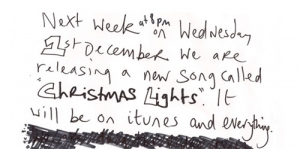 Next week at 8pm on Wednesday
1st December we are
releasing a new song called
"Christmas Lights". It
will be on itunes and everything.